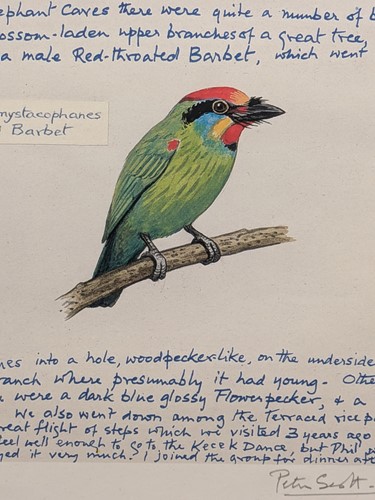 ephant Caves there were quite a number of b
ossom-laden upper branches of a great tree,
a male Red-throated Barbet, which went
mystacophanes
d Barbet
nes into a hole, woodpecker-like, on the underside
ranch where presumably it had young. Othe
were a dark blue glossy Flowerpecker, & a
We also went down among the Terraced rice p
reat flight of steps which we visited 3 years ago
feel well enough to go to the Kecek Dance, but Phil
yed it very much. I joined the group for dinner aft
Peter Scott.